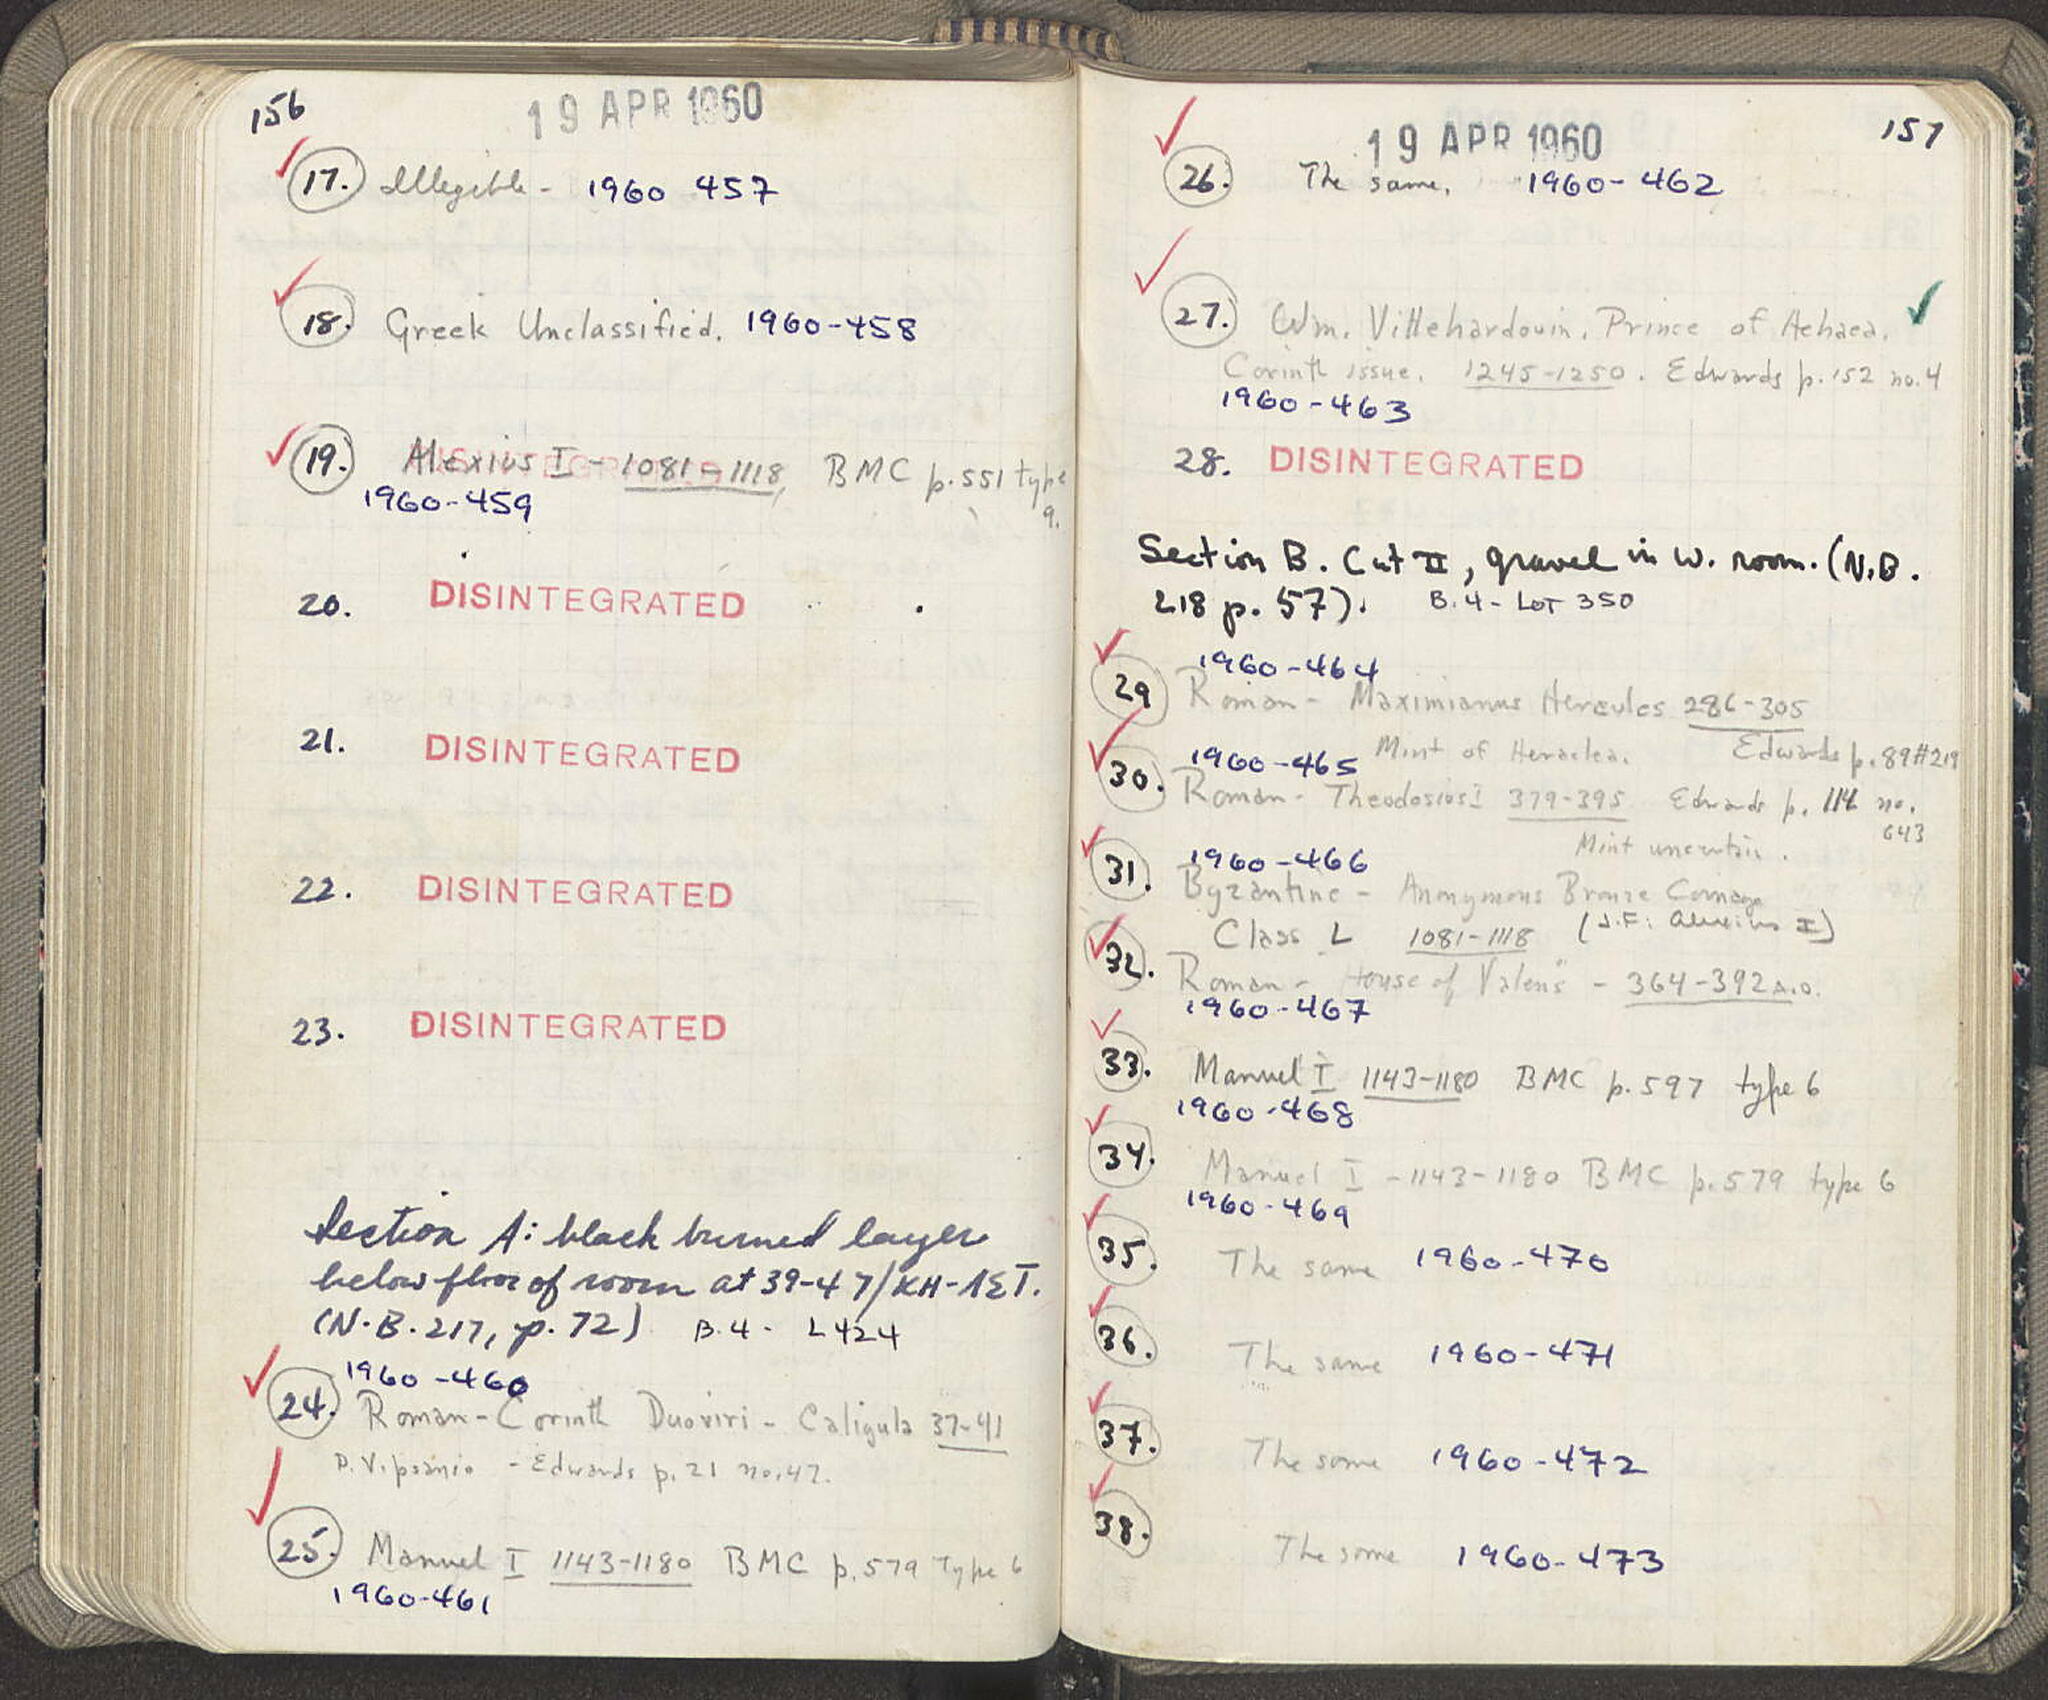 156
19 APR 1960
17. Illegible - 1960 457
18. Greek Unclassified. 1960-458
19. Alexius I - 1081-1118, BMC p.551 type 9.
DISINTEGRATED
1960-459
20. DISINTEGRATED
21. DISINTEGRATED
22. DISINTEGRATED
23. DISINTEGRATED
Section A: black burned layer
below floor of room at 39-47/KH-ΛΣT.
(N.B. 217, p. 72) B.4 - L424
1960-460
24. Roman - Corinth Duoviri - Caligula 37-41
P. Vipsanio - Edwards p. 21 no. 47.
25. Manuel I 1143-1180 BMC p. 579 Type 6
1960-461
157
19 APR 1960
26. The same. 1960-462
27. Wm. Villehardouin. Prince of Achaea.
Corinth issue. 1245-1250. Edwards p. 152 no. 4
1960-463
28. DISINTEGRATED
Section B. Cut II, gravel in W. room. (N.B.
218 p. 57). B.4 - LOT 350
1960-464
29 Roman - Maximianus Hercules 286-305
Mint of Heraclea. Edwards p. 89 #219
1960-465
30. Roman - Theodosius I 379-395 Edwards p. 114 no.
643
Mint uncertain.
1960-466
31. Byzantine - Anonymous Bronze Coinage
Class L 1081-1118 (J.F: Alexius I)
32. Roman - House of Valens - 364-392 A.D.
1960-467
33. Manuel I 1143-1180 BMC p. 597 type 6
1960-468
34. Manuel I - 1143-1180 BMC p. 579 type 6
1960-469
35. The same 1960-470
36. The same 1960-471
37. The same 1960-472
38. The same 1960-473